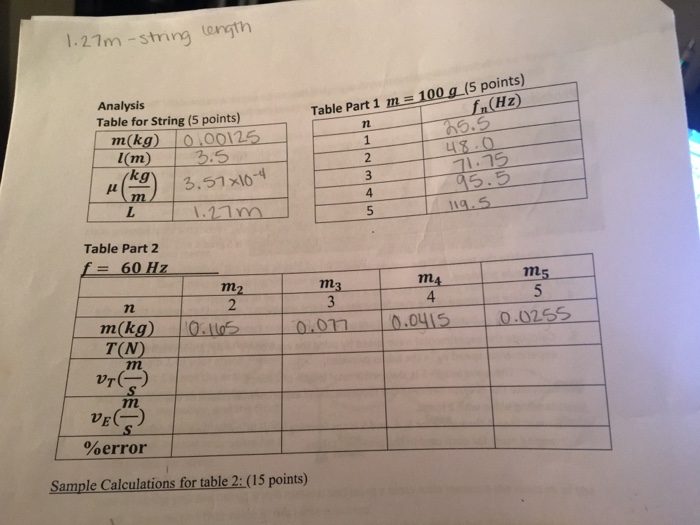 1.27m - string length
Analysis
Table for String (5 points)
m(kg) 0.00125
l(m) 3.5
μ(kg/m) 3.57x10-4
L 1.27m
Table Part 1 m = 100 g (5 points)
n fn(Hz)
1 25.5
2 48.0
3 71.75
4 95.5
5 119.5
Table Part 2
f = 60 Hz
m2 m3 m4 m5
n 2 3 4 5
m(kg) 0.165 0.077 0.0415 0.0255
T(N)
vT(m/s)
vE(m/s)
%error
Sample Calculations for table 2: (15 points)